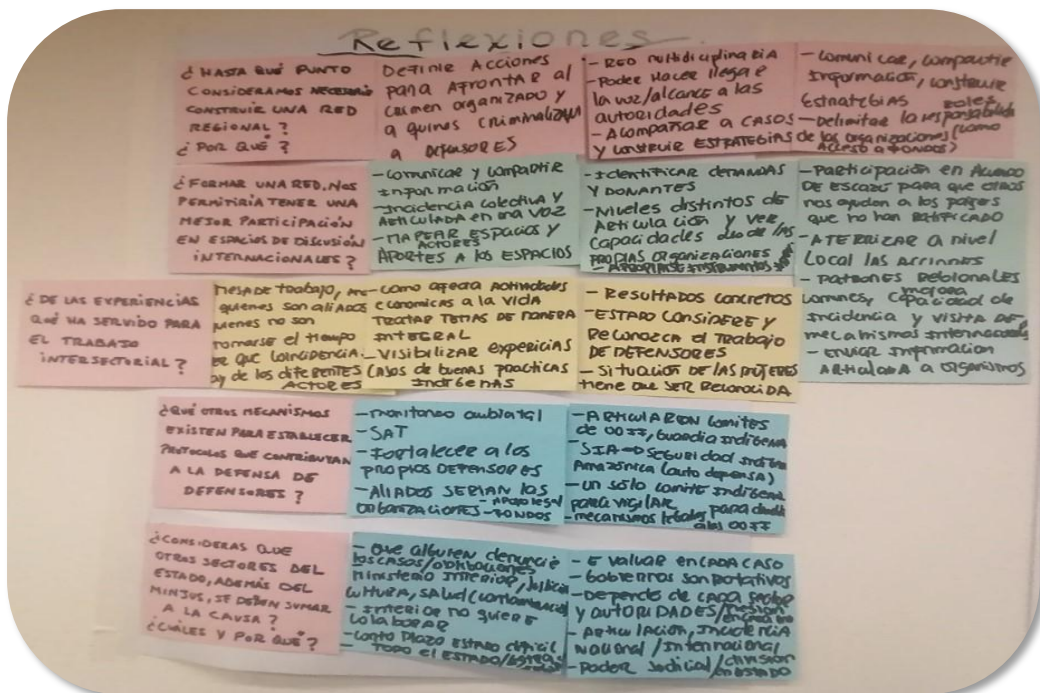 Reflexiones
¿HASTA QUÉ PUNTO
CONSIDERAMOS NECESARIO
CONSTRUIR UNA RED
REGIONAL?
¿POR QUÉ?
DEFINIR ACCIONES
PARA AFRONTAR al
CRIMEN ORGANIZADO y
a quines criminalizan
a DEFENSORES
- RED multidiciplinaRIA
- Poder Hacer llegar
la voz/alcance a las
autoridades
- Acompañar a CASOS
Y construir ESTRATEGIAS
- Comunicar, compartir
Información, construir
Estrategias roles
- Delimitar la responsabilidad
de las organizaciones (como
Acceso a FONDOS)
¿FORMAR UNA RED, NOS
PERMITIRÍA TENER UNA
MEJOR PARTICIPACIÓN
EN ESPACIOS DE DISCUSIÓN
INTERNACIONALES?
- comunicar y compartir
información
- Incidencia colectiva y
Articulada en una voz
- MAPEAR ESPACIOS y
ACTORES
APORTES A los ESPACIOS
- Identificar DEMANDAS
Y DONANTES
- Niveles distintos de
Articulación y ver
Capacidades desde las
PROPIAS ORGANIZACIONES
- Participación en Acuerdo
DE ESCAZÚ para que otros
nos ayuden a los países
que no han RATIFICADO
- ATERRIZAR a nivel
Local las Acciones
- PATRONES REGIONALES
comunes, mejora capacidad de
Incidencia y visita DE
mecanismos Internacionales
- enviar información
ARticulada a organismos
¿DE LAS EXPERIENCIAS
QUÉ HA SERVIDO PARA
EL TRABAJO
INTERSECTORIAL?
MESA DE trabajo,
quienes son aliados
quienes no son
tomarse el tiempo
que coincidencia
hay de los diferentes
ACTORES
- como afecta Actividades
economicas a la vida
TRATAR TEMAS DE MANERA
INTEGRAL
- VISIBILIZAR expericias
CASOS de buenas practicas
Indígenas
- RESULTADOS concretos
- ESTADO CONSIDERE Y
Reconozca el trabajo
DE DEFENSORES
- Situación DE LAS MUJERES
tiene que SER Reconocida
¿QUÉ OTROS MECANISMOS
EXISTEN PARA ESTABLECER
PROTOCOLOS QUE CONTRIBUYAN
A LA DEFENSA DE
DEFENSORES?
- monitoreo ambiental
- SAT
- Fortalecer a los
propios DEFENSORES
- Aliados SERIAN las
ORGANIZACIONES - APOYO legal
- FONDOS
- ARticularon comites
de OOII, Guardia indígena
- SIA → SEGURIDAD Indígena
Amazónica (auto depensa)
- un sólo comité indígena
para vigilar
- mecanismos legales para
a las OOII
¿CONSIDERAS QUE
OTROS SECTORES DEL
ESTADO, ADEMÁS DEL
MINJUS, SE DEBEN SUMAR
A LA CAUSA?
¿CUÁLES Y POR QUÉ?
- Que alguien denuncie
los casos/
Ministerio Interior, Justicia
cultura, salud
- Interior no quiere
colaborar
- Corto Plazo ESTADO difícil
TODO el ESTADO/
- Evaluar en CADA CASO
- Gobiernos son
- Depende de cada sector
y autoridades/
- Articulación, Incidencia
Nacional / Internacional
- Poder Judicial / división
en ESTADO